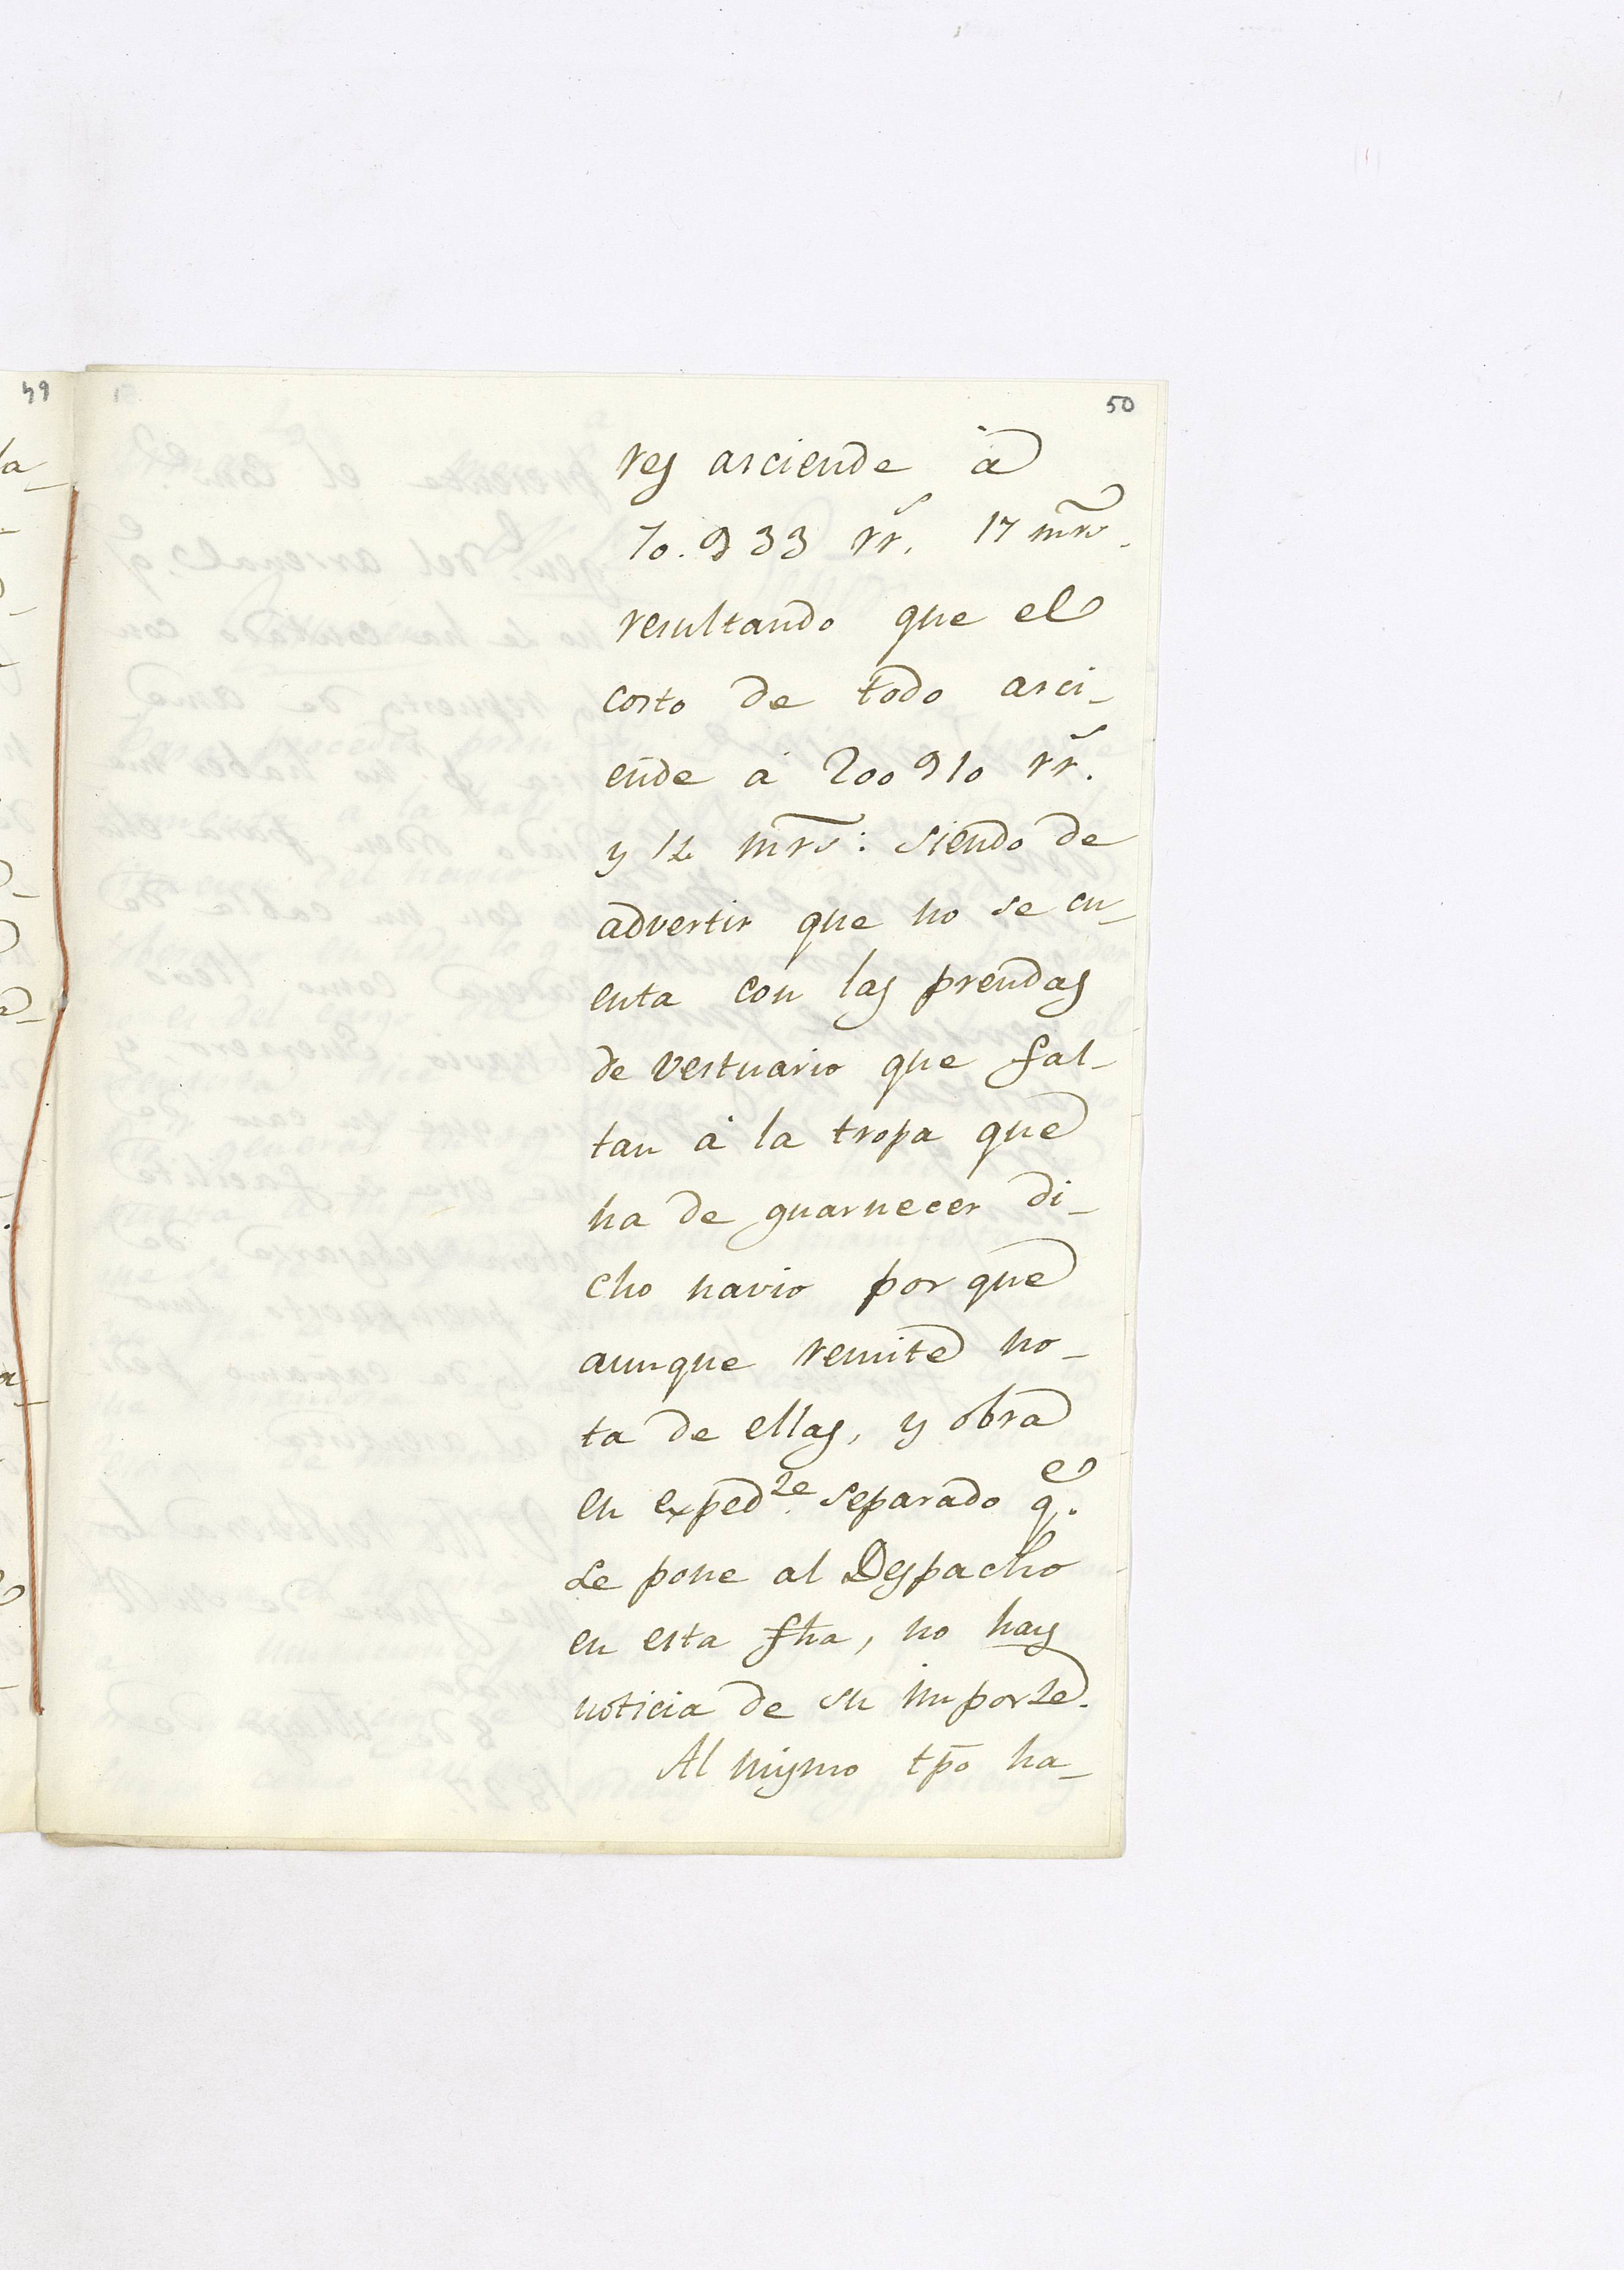 50
res asciende á
70.933 rr.s 17 mrs.
resultando que el
costo de todo asci-
ende á 200910 rr.s
y 12 mrs: siendo de
advertir que no se cu-
enta con las prendas
de vestuario que fal-
tan á la tropa que
ha de guarnecer di-
cho navio por que
aunque remite no-
ta de ellas, y obra
en exped.te separado q.e
se pone al Despacho
en esta fha, no hay
noticia de su importe.
Al mismo tpo ha-
49